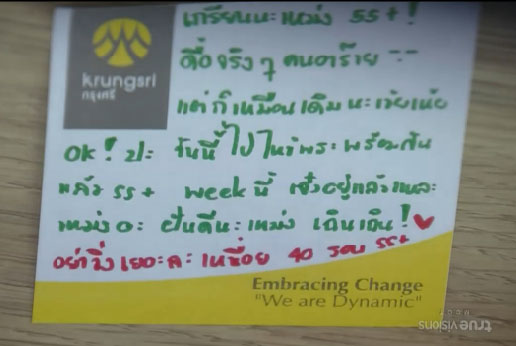 krungsri
กรุงศรี
เกรียนนะ เหม่ง 55+!
ดื้อจริงๆ คนอาร้าย
แต่ก็เหมือนเดิมนะ
OK! ปะ วันนี้ไปไหว้พระพร้อมกัน
แล้ว 55+ weekนี้ เจ๋งอยู่แล้วแหละ
เหม่งอะ ฝันดีนะเหม่ง เถินเถิน!
อย่าวิ่งเยอะละ เหนื่อย 40 รอบ 55+
Embracing Change
"We are Dynamic"
truevisions